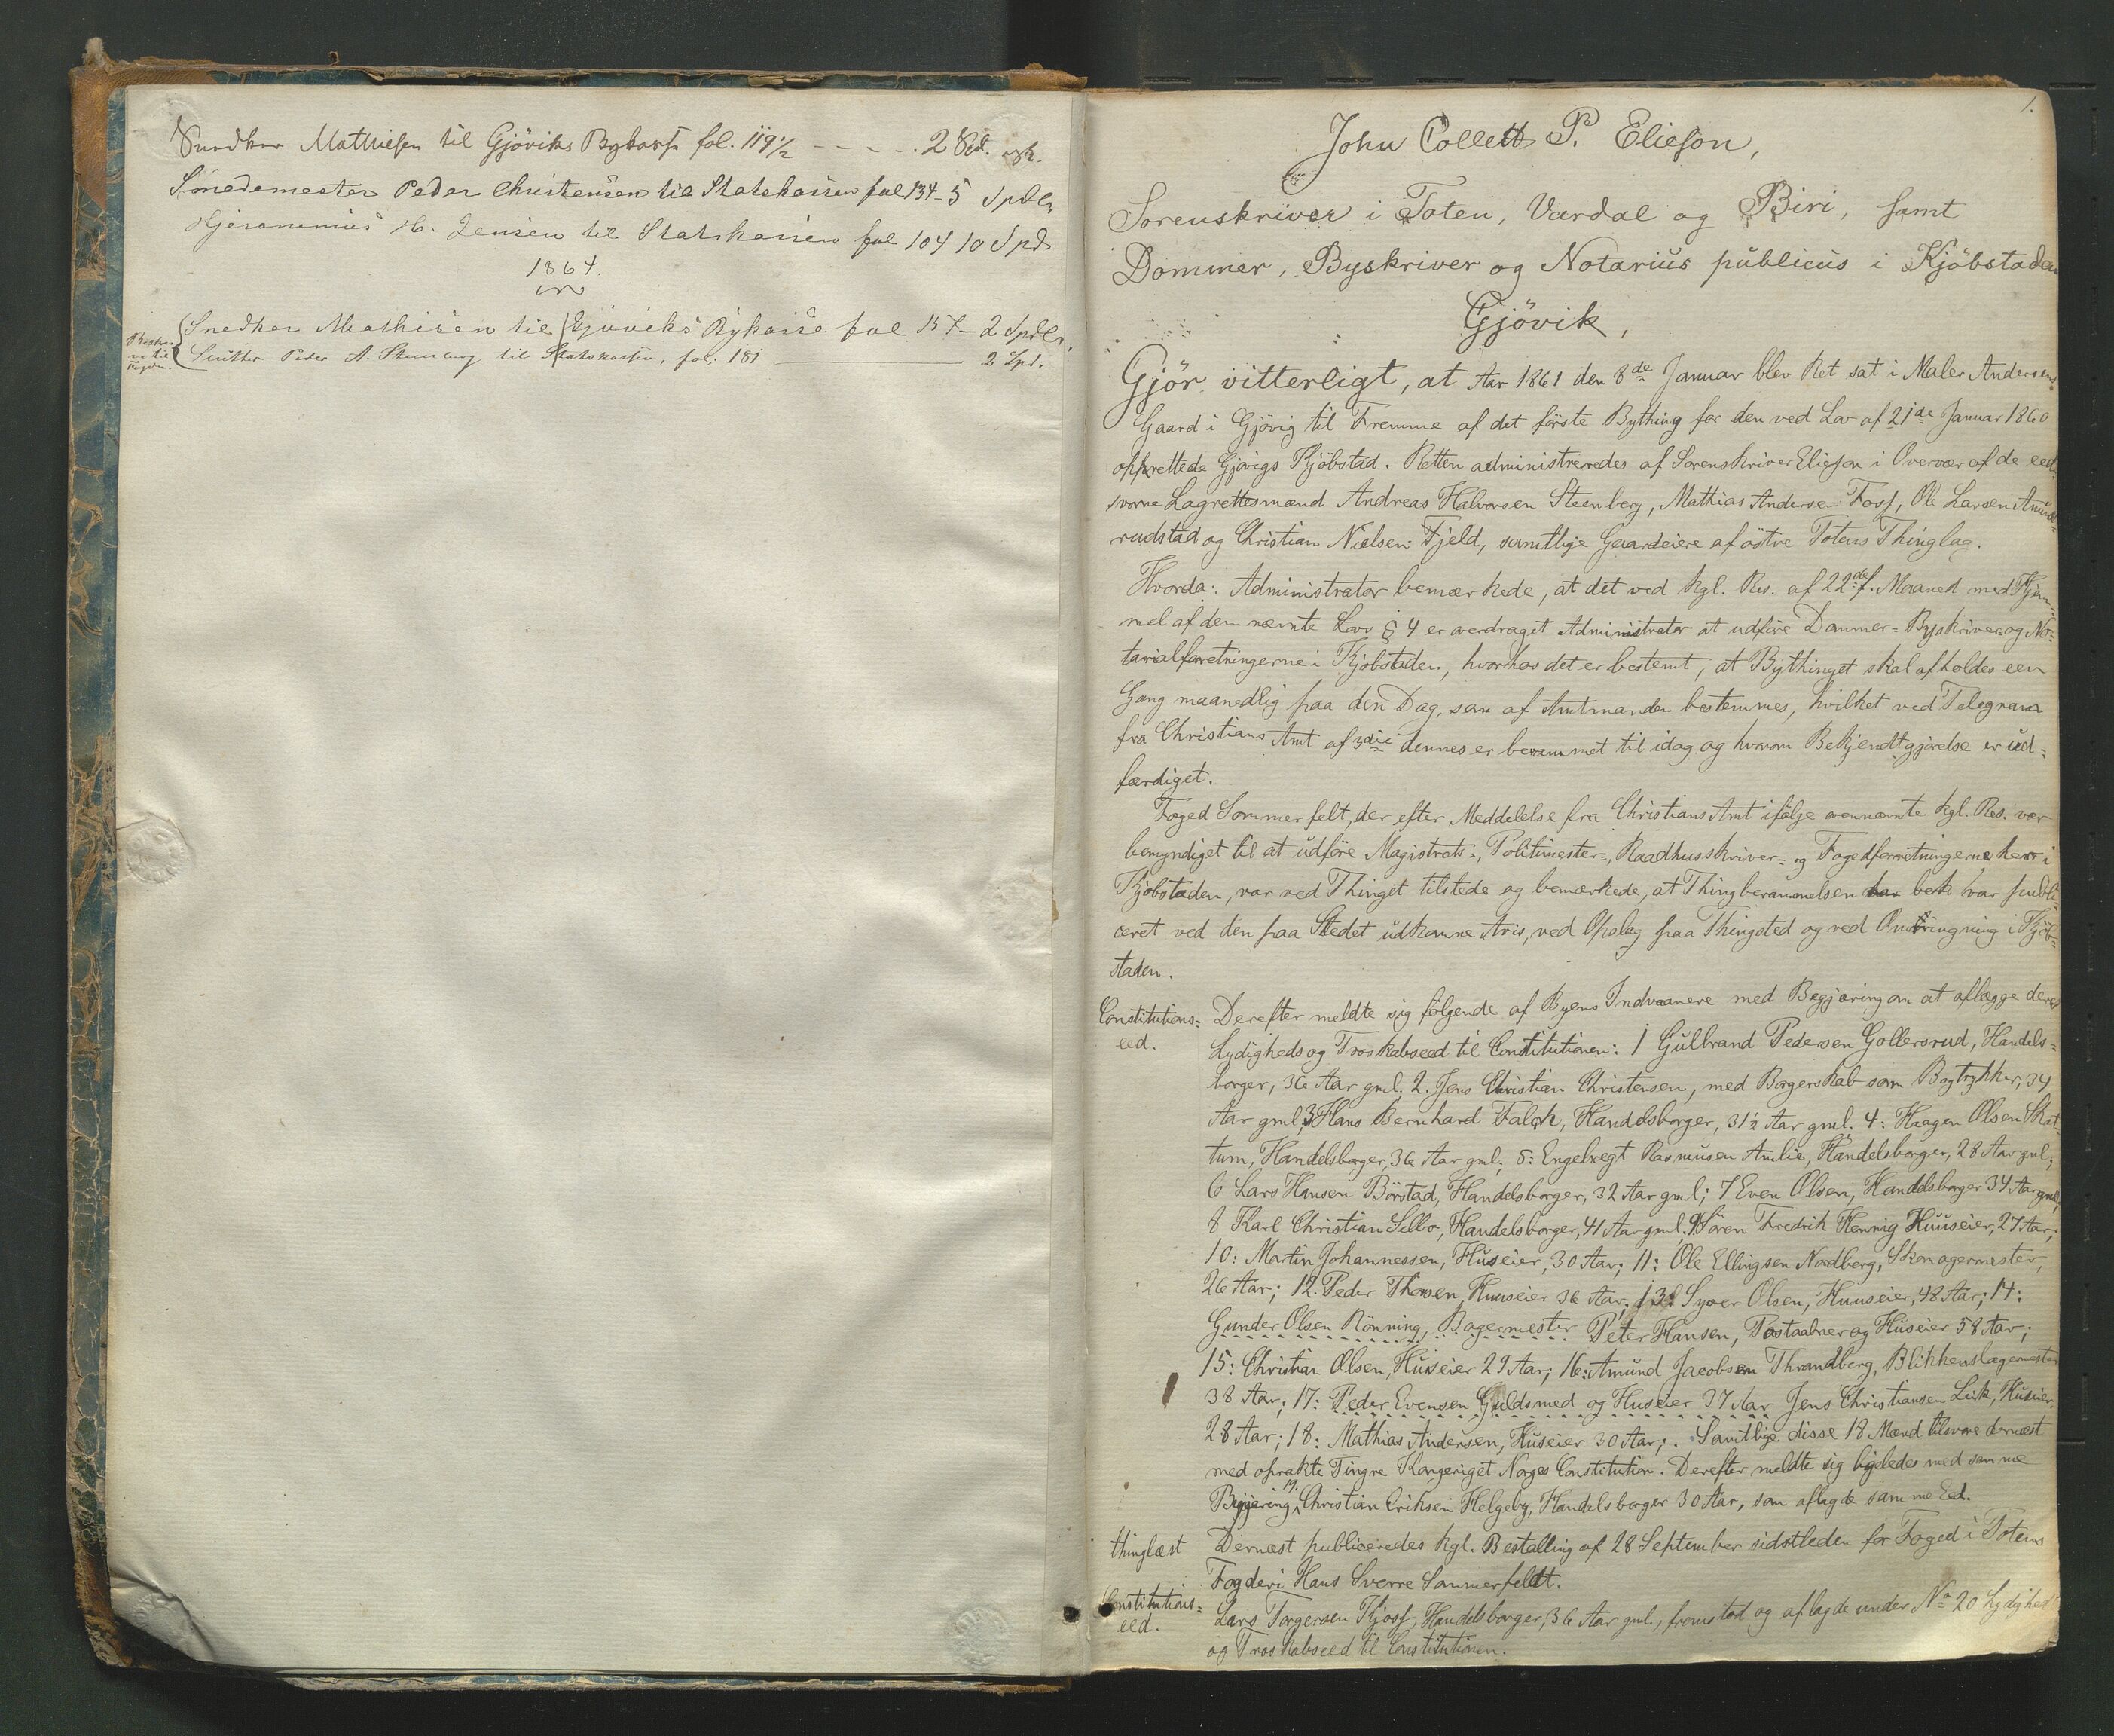 Snedker Mathiesen til Gjöviks Bykasse fol. 119 1/2 - - - - . 2 Spd.
Smedemester Peder Christensen til Statskassen fol 134 - 5 Spdlr
Hjeronimus H. Jensen til Statskassen fol 104 10 Spd
1864.
Snedker Mathisen til Gjöviks Bykasse fol 157 - 2 Spdlr.
til Statskassen, fol. 181 2 Spd.
1.
John Collett P. Elieson,
Sorenskriver i Toten, Vardal og Biri, samt
Dommer, Byskriver og Notarius publicus i Kjöbstaden
Gjövik,
Gjör vitterligt, at Aar 1861 den 8de Januar blev Ret sat i Maler Andersens
Gaard i Gjövig til Fremme af det förste Bything for den ved Lov af 21de Januar 1860
opprettede Gjövigs Kjöbstad. Retten administreredes af Sorenskriver Elieson i Overvær af de eed-
svorne Lagrettesmænd Andreas Halvorsen Steenberg, Mathias Andersen Foss, Ole Larsen Amund-
rudstad og Christian Nielsen Fjeld, samtlige Gaardeiere af östre Totens Thinglag.
Hvorda: Administrator bemærkede, at det ved kgl. Res. af 22de f. Maaned med Hjem-
mel af den nævnte Lovs § 4 er overdraget Administrator at udföre Dommer- Byskriver og No-
tarialforretningerne i Kjöbstaden, hvorhos det er bestemt, at Bythinget skal afholdes een
Gang maanedlig paa den Dag, som af Amtmanden bestemmes, hvilket ved Telegram
fra Christians Amt af 3die dennes er berammet til idag og hvorom Bekjendtgjörelse er ud-
færdiget.
Foged Sommerfelt, der efter Meddelelse fra Christians Amt ifölge ovennævnte kgl. Res. var
bemyndiget til at udföre Magistrats-, Politimester-, Raadhusskriver- og Fogedforretningerne her i
Kjöbstaden, var ved Thinget tilstede og bemærkede, at Thingberammelsen har bek var publi-
ceret ved den paa Stedet udkomne Avis, ved Opslag paa Thingsted og ved Omringning i Kjöb-
staden.
Constitutions- Derefter meldte sig fölgende af Byens Indvaanere med Begjæring om at aflægge deres
eed. Lydigheds og Troskabseed til Constitutionen: 1 Gulbrand Pedersen Gollersrud, Handels-
borger, 36 Aar gml. 2. Jens Christian Christensen, med Borgerskab som Bogtrykker, 34
Aar gml; 3 Hans Bernhard Falck, Handelsborger, 31 1/2 Aar gml. 4: Haagen Olsen Skat-
tum, Handelsborger, 36 Aar gml; 5: Engelbregt Rasmusen Amlie, Handelsborger, 28 Aar gml;
6 Lars Hansen Börstad, Handelsborger, 32 Aar gml; 7 Even Olsen, Handelsborger 34 Aar gml;
8 Karl Christian Selbo, Handelsborger, 41 Aar gml. 9 Sören Fredrik Hennig Huuseier, 27 Aar;
10: Martin Johannessen, Huseier, 30 Aar; 11: Ole Ellingsen Nordberg, Skomagermester,
26 Aar; 12. Peder Thorsen, Huuseier 36 Aar; 13: Syver Olsen, Huuseier, 48 Aar; 14:
Gunder Olsen Rönning, Bagermester Peter Hansen, Postaabner og Huseier 58 Aar;
15: Christian Olsen, Huseier 29 Aar; 16: Amund Jacobsen Thrandberg, Blikkenslagermester
38 Aar; 17: Peder Evensen Guldsmed og Huseier 37 Aar Jens Christiansen Leik, Huseier,
28 Aar; 18: Mathias Andersen, Huseier 30 Aar; . Samtlige disse 18 Mænd tilsvore dernæst
med oprakte Fingre Kongeriget Norges Constitution. Derefter meldte sig ligeledes med samme
Begjæring 19. Christian Eriksen Helgeby, Handelsborger 30 Aar, som aflagde samme Eed.
thinglæst Dernæst publiceredes kgl. Bestalling af 28 September sidstleden for Foged i Totens
Fogderi Hans Sverre Sommerfeldt.
Constitutions- Lars Torgersen Kjoss, Handelsborger, 36 Aar gml., fremstod og aflagde under No 20 Lydigheds
eed. og Troskabseed til Constitutionen.